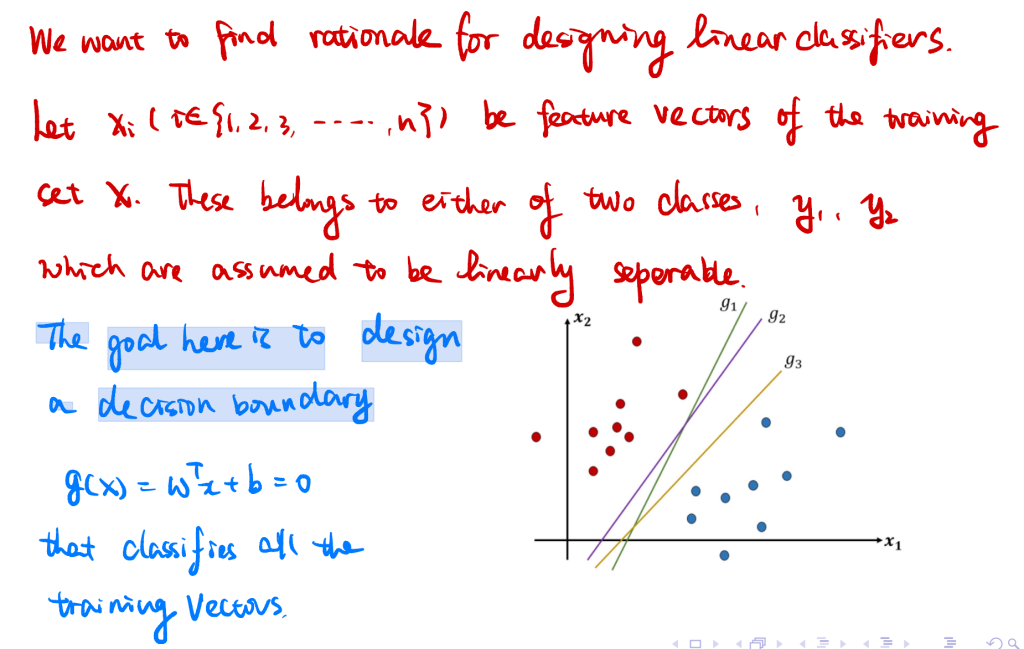 We want to find rationale for designing linear classifiers.
Let xᵢ (i∈{1, 2, 3, -----, n}) be feature vectors of the training
set X. These belongs to either of two classes, y₁, y₂
which are assumed to be linearly seperable.
The goal here is to design
a decision boundary
g(x) = wᵀx + b = 0
that classifies all the
training vectors.
x₂
g₁
g₂
g₃
x₁